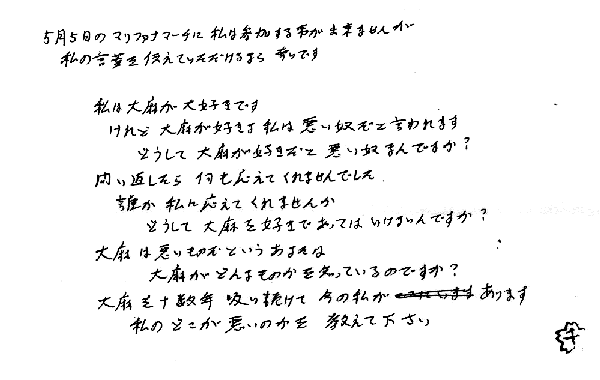 5月5日のマリファナマーチに私は参加する事が出来ませんが
私の言葉を伝えていただけるなら幸いです
私は大麻が大好きです
けれど 大麻が好きな私は悪い奴だと言われます
どうして 大麻が好きだと 悪い奴なんですか?
問い返したら 何も応えてくれませんでした
誰か 私に応えてくれませんか
どうして 大麻を好きであってはいけないんですか?
大麻は悪いものだというあなたは
大麻がどんなものかを知っているのですか?
大麻を十数年 吸い続けて 今の私が あります
私のどこが悪いのかを 教えて下さい